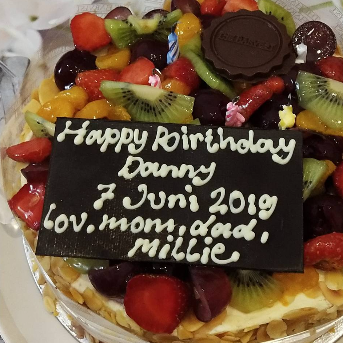 Happy Birthday
Danny
7 Juni 2019
Lov, mom, dad,
Millie